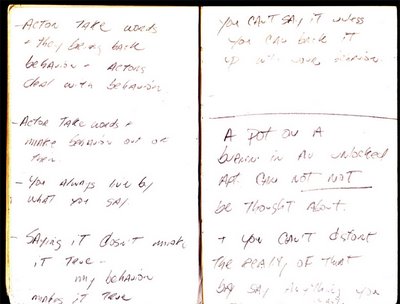 - ACTOR TAKE words
+ they bring back
behavior - Actors
deal with behavior
- ACTOR TAKE words +
make behavior out of
them.
- You always live by
what you say.
- SAying it doesn't make
it true -
my behavior
makes it true
You CAN'T SAy it unless
you can back it
up with your
A POT ON A
burner in an unlocked
Apt. CAN NOT NOT
be Thought About.
+ you CAN'T distort
the reality of that
by say anything you